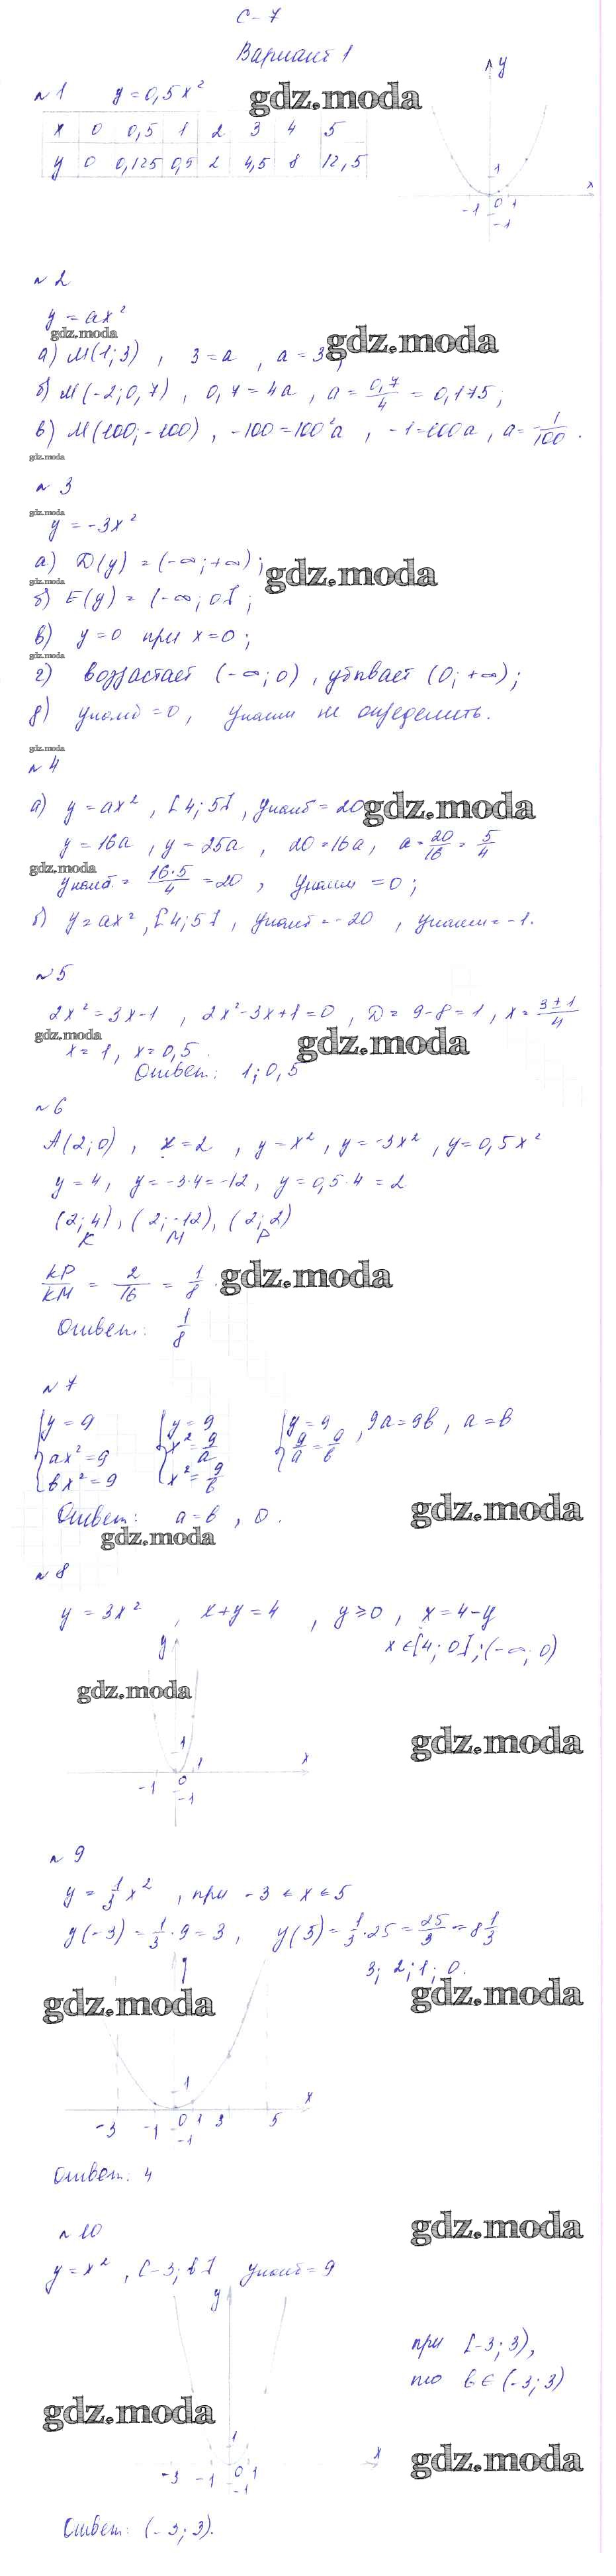 С-7
Вариант 1
№1 y=0,5x²
gdz.moda
x 0 0,5 1 2 3 4 5
y 0 0,125 0,5 2 4,5 8 12,5
y
1
x
-1 0 1
-1
№2
y=ax²
gdz.moda
gdz.moda
а) M(1;3) , 3=a , a=3;
б) M(-2;0,7) , 0,7=4a , a=0,7/4=0,175;
в) M(100;-100) , -100=100²a , -1=100a , a=-1/100.
gdz.moda
№3
gdz.moda
y=-3x²
а) D(y)=(-∞;+∞);
gdz.moda
gdz.moda
б) E(y)=(-∞;0];
в) y=0 при x=0;
gdz.moda
г) возрастает (-∞;0), убывает (0;+∞);
д) yнаиб=0, yнаим не определить.
gdz.moda
№4
а) y=ax², [4;5], yнаиб=20
gdz.moda
y=16a , y=25a , 20=16a , a=20/16=5/4
gdz.moda
yнаиб.=16·5/4=20 , yнаим=0;
б) y=ax², [4;5], yнаиб=-20 , yнаим=-1.
№5
2x²=3x-1 , 2x²-3x+1=0 , D=9-8=1 , x=3±1/4
gdz.moda
gdz.moda
x=1, x=0,5.
Ответ: 1;0,5
№6
A(2;0) , x=2 , y=x² , y=-3x² , y=0,5x²
y=4, y=-3·4=-12, y=0,5·4=2
(2;4), (2;-12), (2;2)
K M P
KP/KM = 2/16 = 1/8
gdz.moda
Ответ: 1/8
№7
{y=9 {y=9 {y=9 , 9a=9b , a=b
ax²=9 x²=9/a 9/a=9/b
bx²=9 x²=9/b
Ответ: a=b , 0.
gdz.moda
gdz.moda
№8
y=3x² , x+y=4 , y≥0 , x=4-y
x∈[4;0];(-∞;0)
y
gdz.moda
gdz.moda
1
x
-1 0 1
-1
№9
y=1/3x² , при -3≤x≤5
y(-3)=1/3·9=3 , y(5)=1/3·25=25/3=8 1/3
3; 2; 1; 0.
gdz.moda
gdz.moda
1
x
-3 -1 0 1 3 5
-1
Ответ: 4
№10
gdz.moda
y=x² , [-3;b] yнаиб=9
y
при [-3;3),
то b∈(-3;3)
gdz.moda
gdz.moda
1
x
-3 -1 0 1
-1
Ответ: (-3;3).